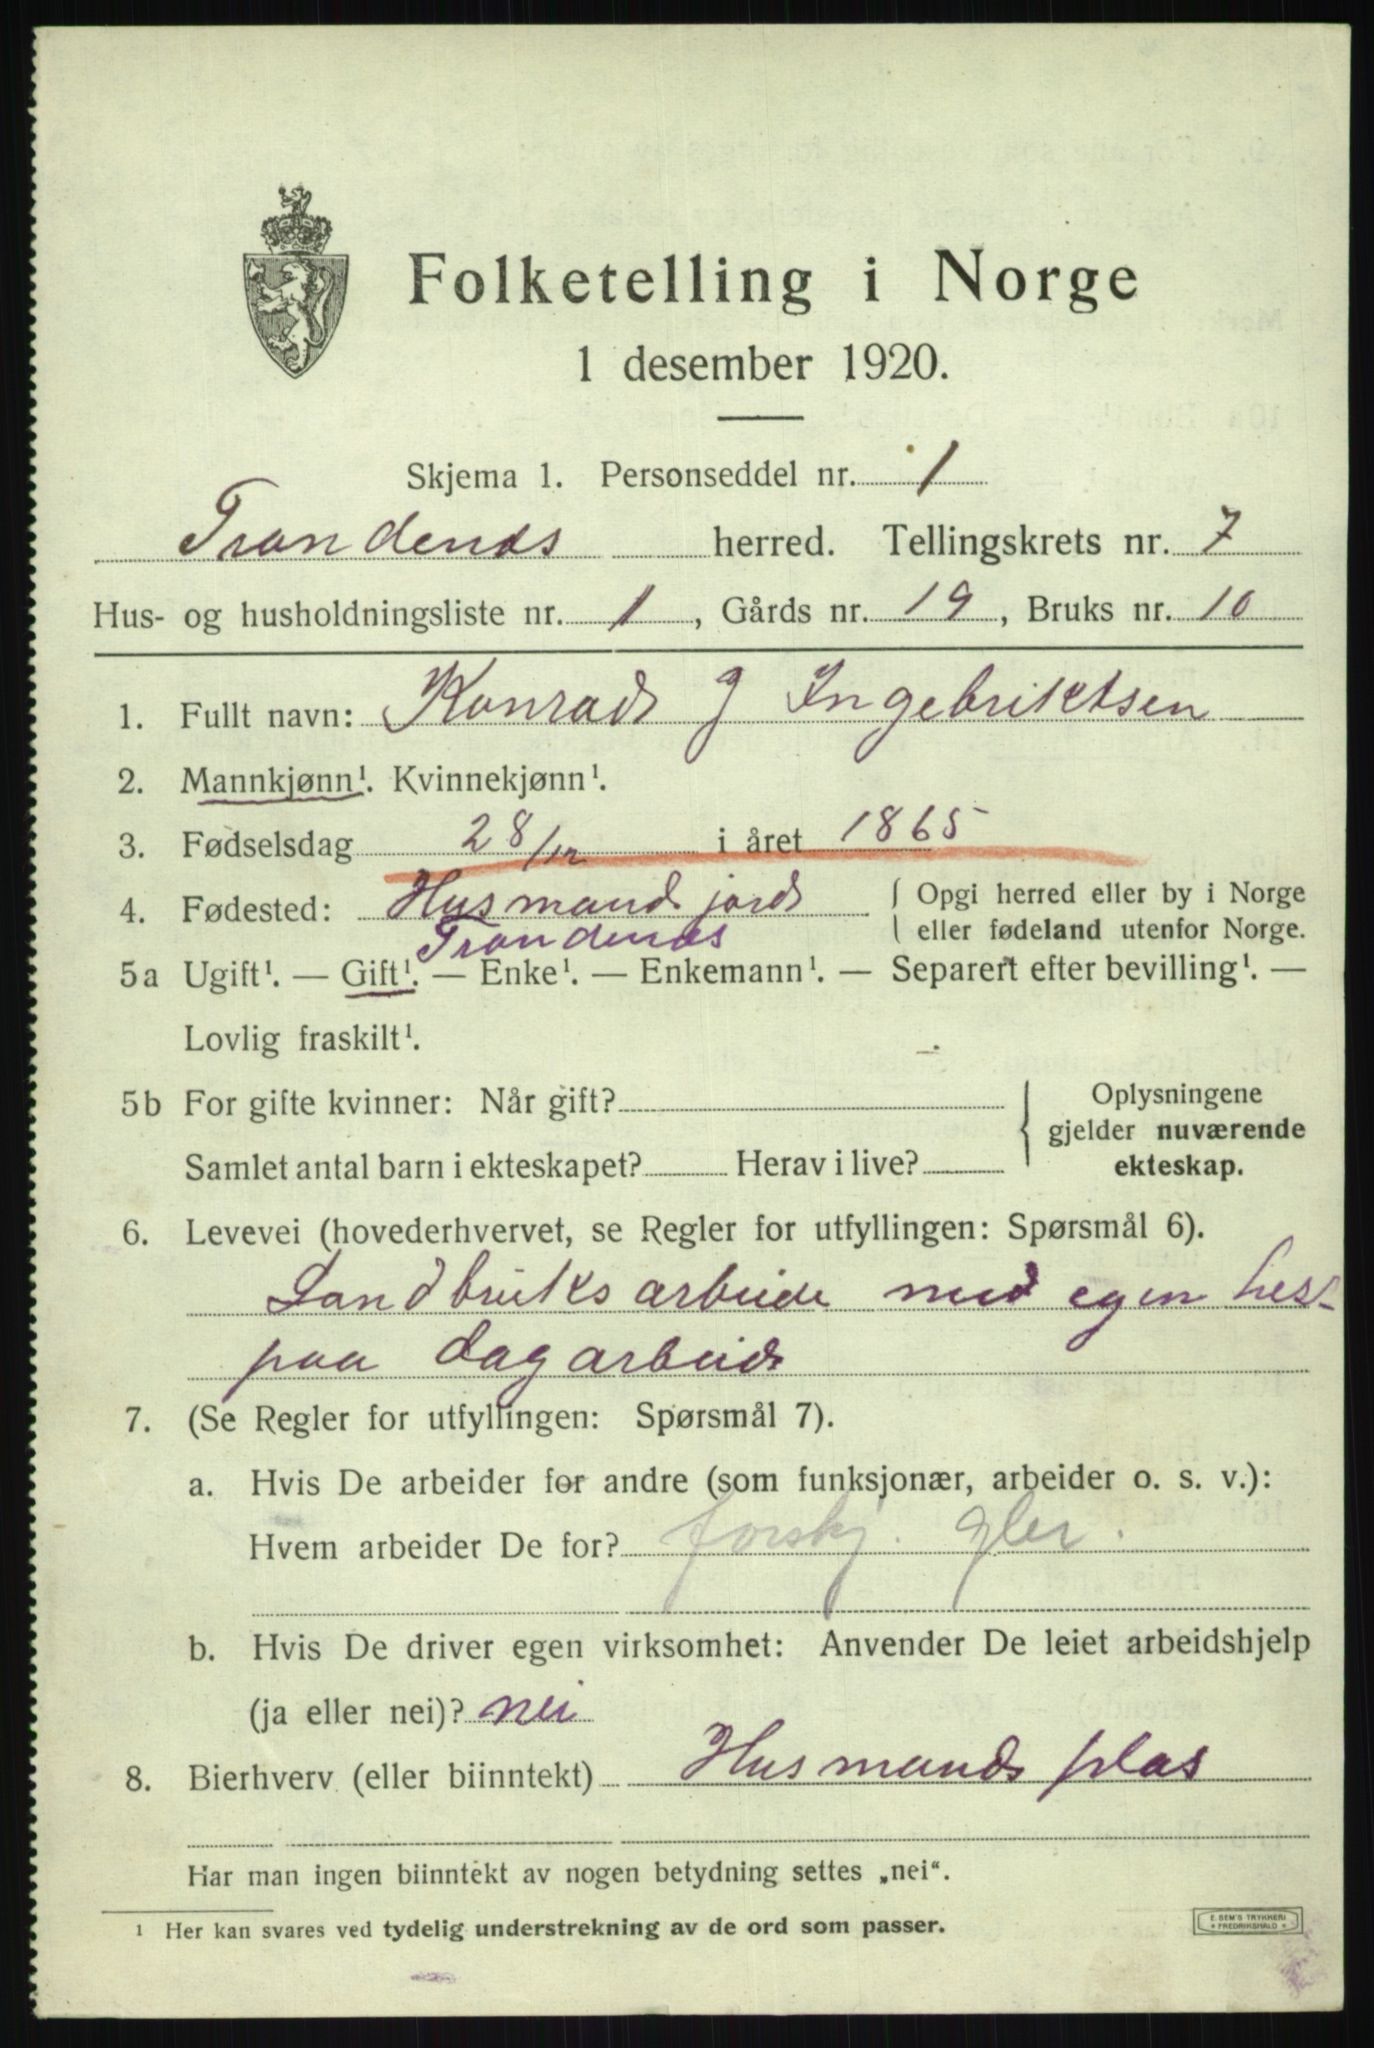 Folketelling i Norge
1 desember 1920.
Skjema 1. Personseddel nr. 1
Trondenes herred. Tellingskrets nr. 7
Hus- og husholdningsliste nr. 1, Gårds nr. 19, Bruks nr. 10
1. Fullt navn: Konrad J Ingebriktsen
2. Mannkjønn¹. Kvinnekjønn¹.
3. Fødselsdag 28/12 i året 1865
4. Fødested: Husmands jord { Opgi herred eller by i Norge
Trondenes eller fødeland utenfor Norge.
5a Ugift¹. — Gift¹. — Enke¹. — Enkemann¹. — Separert efter bevilling¹. —
Lovlig fraskilt¹.
5b For gifte kvinner: Når gift? } Oplysningene
gjelder nuværende
Samlet antal barn i ekteskapet? Herav i live? ekteskap.
6. Levevei (hovederhvervet, se Regler for utfyllingen: Spørsmål 6).
Landbruks arbeide med egen hest
paa dagarbeide
7. (Se Regler for utfyllingen: Spørsmål 7).
a. Hvis De arbeider for andre (som funksjonær, arbeider o. s. v.):
Hvem arbeider De for? forskj.
b. Hvis De driver egen virksomhet: Anvender De leiet arbeidshjelp
(ja eller nei)? nei
8. Bierhverv (eller biinntekt) Husmands plas
Har man ingen biinntekt av nogen betydning settes „nei“.
¹ Her kan svares ved tydelig understrekning av de ord som passer.
E. SEM'S TRYKKERI
* FREDRIKSHALD *